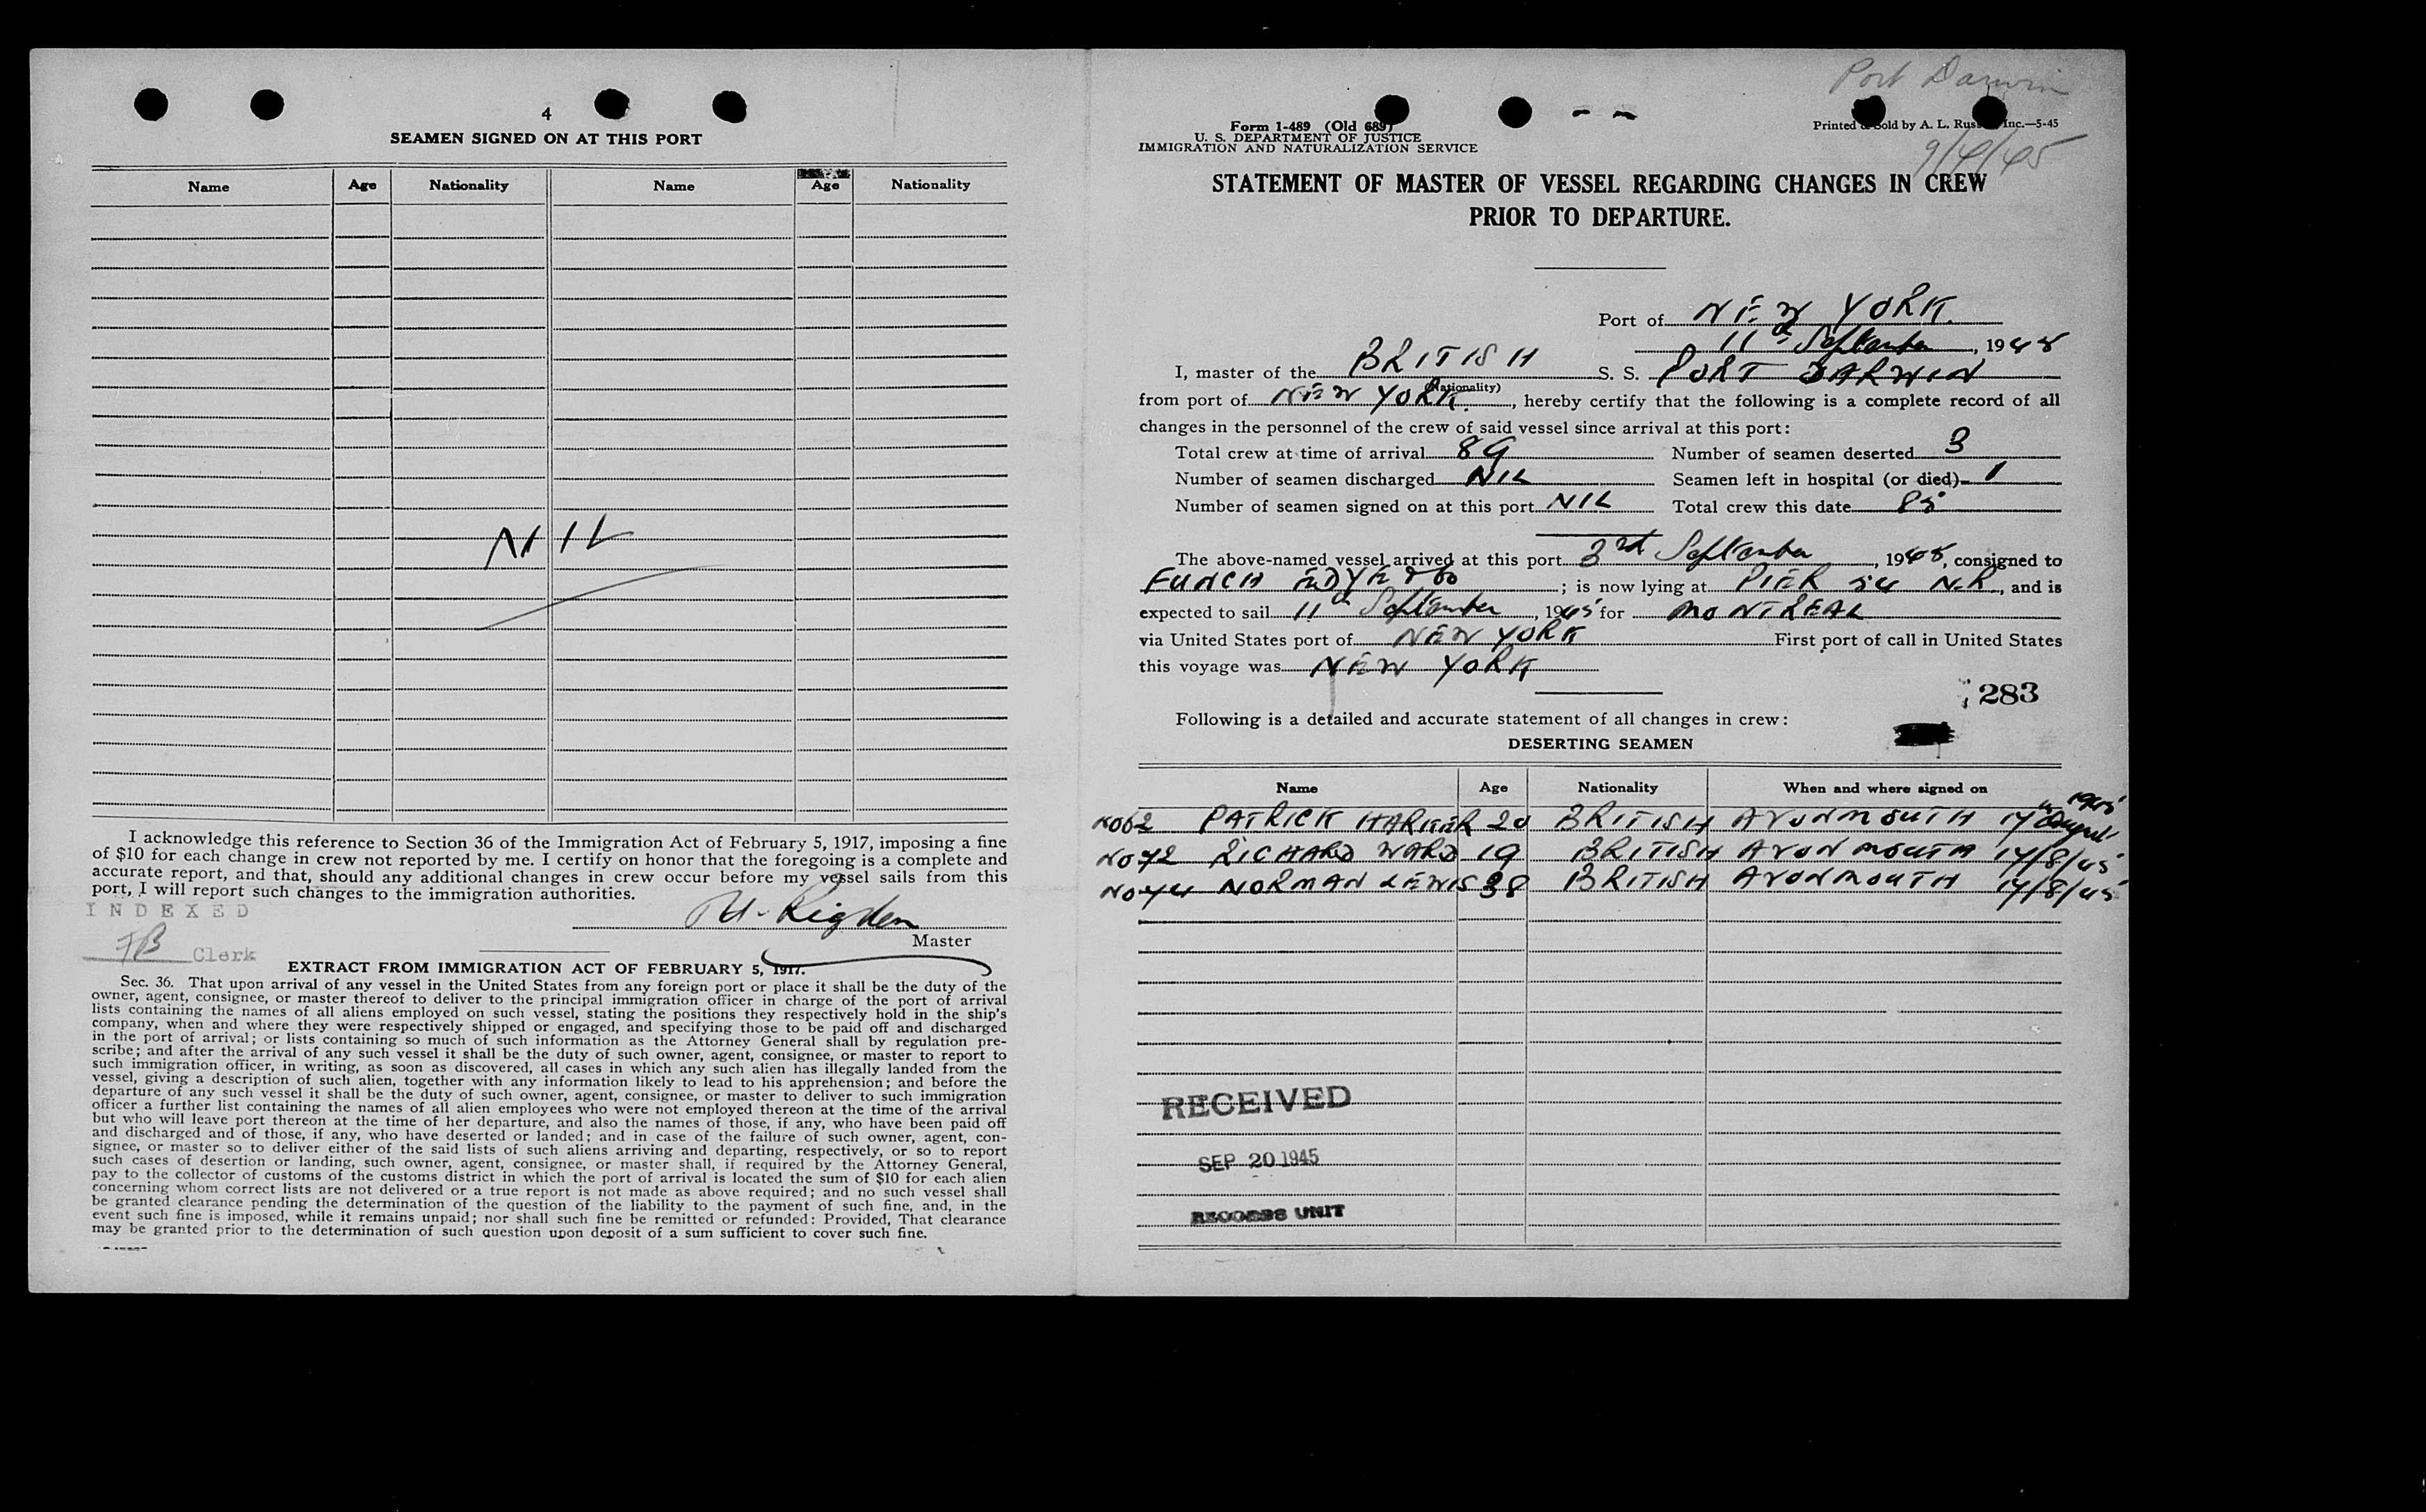 4
SEAMEN SIGNED ON AT THIS PORT
Name Age Nationality Name Age Nationality
NIL
I acknowledge this reference to Section 36 of the Immigration Act of February 5, 1917, imposing a fine
of $10 for each change in crew not reported by me. I certify on honor that the foregoing is a complete and
accurate report, and that, should any additional changes in crew occur before my vessel sails from this
port, I will report such changes to the immigration authorities.
INDEXED
Rigden
Master
Clerk
EXTRACT FROM IMMIGRATION ACT OF FEBRUARY 5, 1917.
Sec. 36. That upon arrival of any vessel in the United States from any foreign port or place it shall be the duty of the
owner, agent, consignee, or master thereof to deliver to the principal immigration officer in charge of the port of arrival
lists containing the names of all aliens employed on such vessel, stating the positions they respectively hold in the ship's
company, when and where they were respectively shipped or engaged, and specifying those to be paid off and discharged
in the port of arrival; or lists containing so much of such information as the Attorney General shall by regulation pre-
scribe; and after the arrival of any such vessel it shall be the duty of such owner, agent, consignee, or master to report to
such immigration officer, in writing, as soon as discovered, all cases in which any such alien has illegally landed from the
vessel, giving a description of such alien, together with any information likely to lead to his apprehension; and before the
departure of any such vessel it shall be the duty of such owner, agent, consignee, or master to deliver to such immigration
officer a further list containing the names of all alien employees who were not employed thereon at the time of the arrival
but who will leave port thereon at the time of her departure, and also the names of those, if any, who have been paid off
and discharged and of those, if any, who have deserted or landed; and in case of the failure of such owner, agent, con-
signee, or master so to deliver either of the said lists of such aliens arriving and departing, respectively, or so to report
such cases of desertion or landing, such owner, agent, consignee, or master shall, if required by the Attorney General,
pay to the collector of customs of the customs district in which the port of arrival is located the sum of $10 for each alien
concerning whom correct lists are not delivered or a true report is not made as above required; and no such vessel shall
be granted clearance pending the determination of the question of the liability to the payment of such fine, and, in the
event such fine is imposed, while it remains unpaid; nor shall such fine be remitted or refunded: Provided, That clearance
may be granted prior to the determination of such question upon deposit of a sum sufficient to cover such fine.
Port Darwin
Form 1-489 (Old 689)
U. S. DEPARTMENT OF JUSTICE
IMMIGRATION AND NATURALIZATION SERVICE
Printed & Sold by A. L. Russ Inc.—5-45
9/4/45
STATEMENT OF MASTER OF VESSEL REGARDING CHANGES IN CREW
PRIOR TO DEPARTURE.
Port of NEW YORK.
11th September, 1945
I, master of the BRITISH S. S. PORT DARWIN
(Nationality)
from port of NEW YORK., hereby certify that the following is a complete record of all
changes in the personnel of the crew of said vessel since arrival at this port:
Total crew at time of arrival 89 Number of seamen deserted 3
Number of seamen discharged NIL Seamen left in hospital (or died) 1
Number of seamen signed on at this port NIL Total crew this date 85
The above-named vessel arrived at this port 3rd September, 1945, consigned to
FUNCH EDYE & Co; is now lying at PIER 54 N.R, and is
expected to sail 11th September, 1945 for MONTREAL
via United States port of NEW YORK First port of call in United States
this voyage was NEW YORK
283
Following is a detailed and accurate statement of all changes in crew:
DESERTING SEAMEN
Name Age Nationality When and where signed on
No62 PATRICK HARKER 20 BRITISH AVONMOUTH 14th August 1945
No72 RICHARD WARD 19 BRITISH AVONMOUTH 14/8/45
No74 NORMAN LEWIS 38 BRITISH AVONMOUTH 14/8/45
RECEIVED
SEP 20 1945
RECORDS UNIT